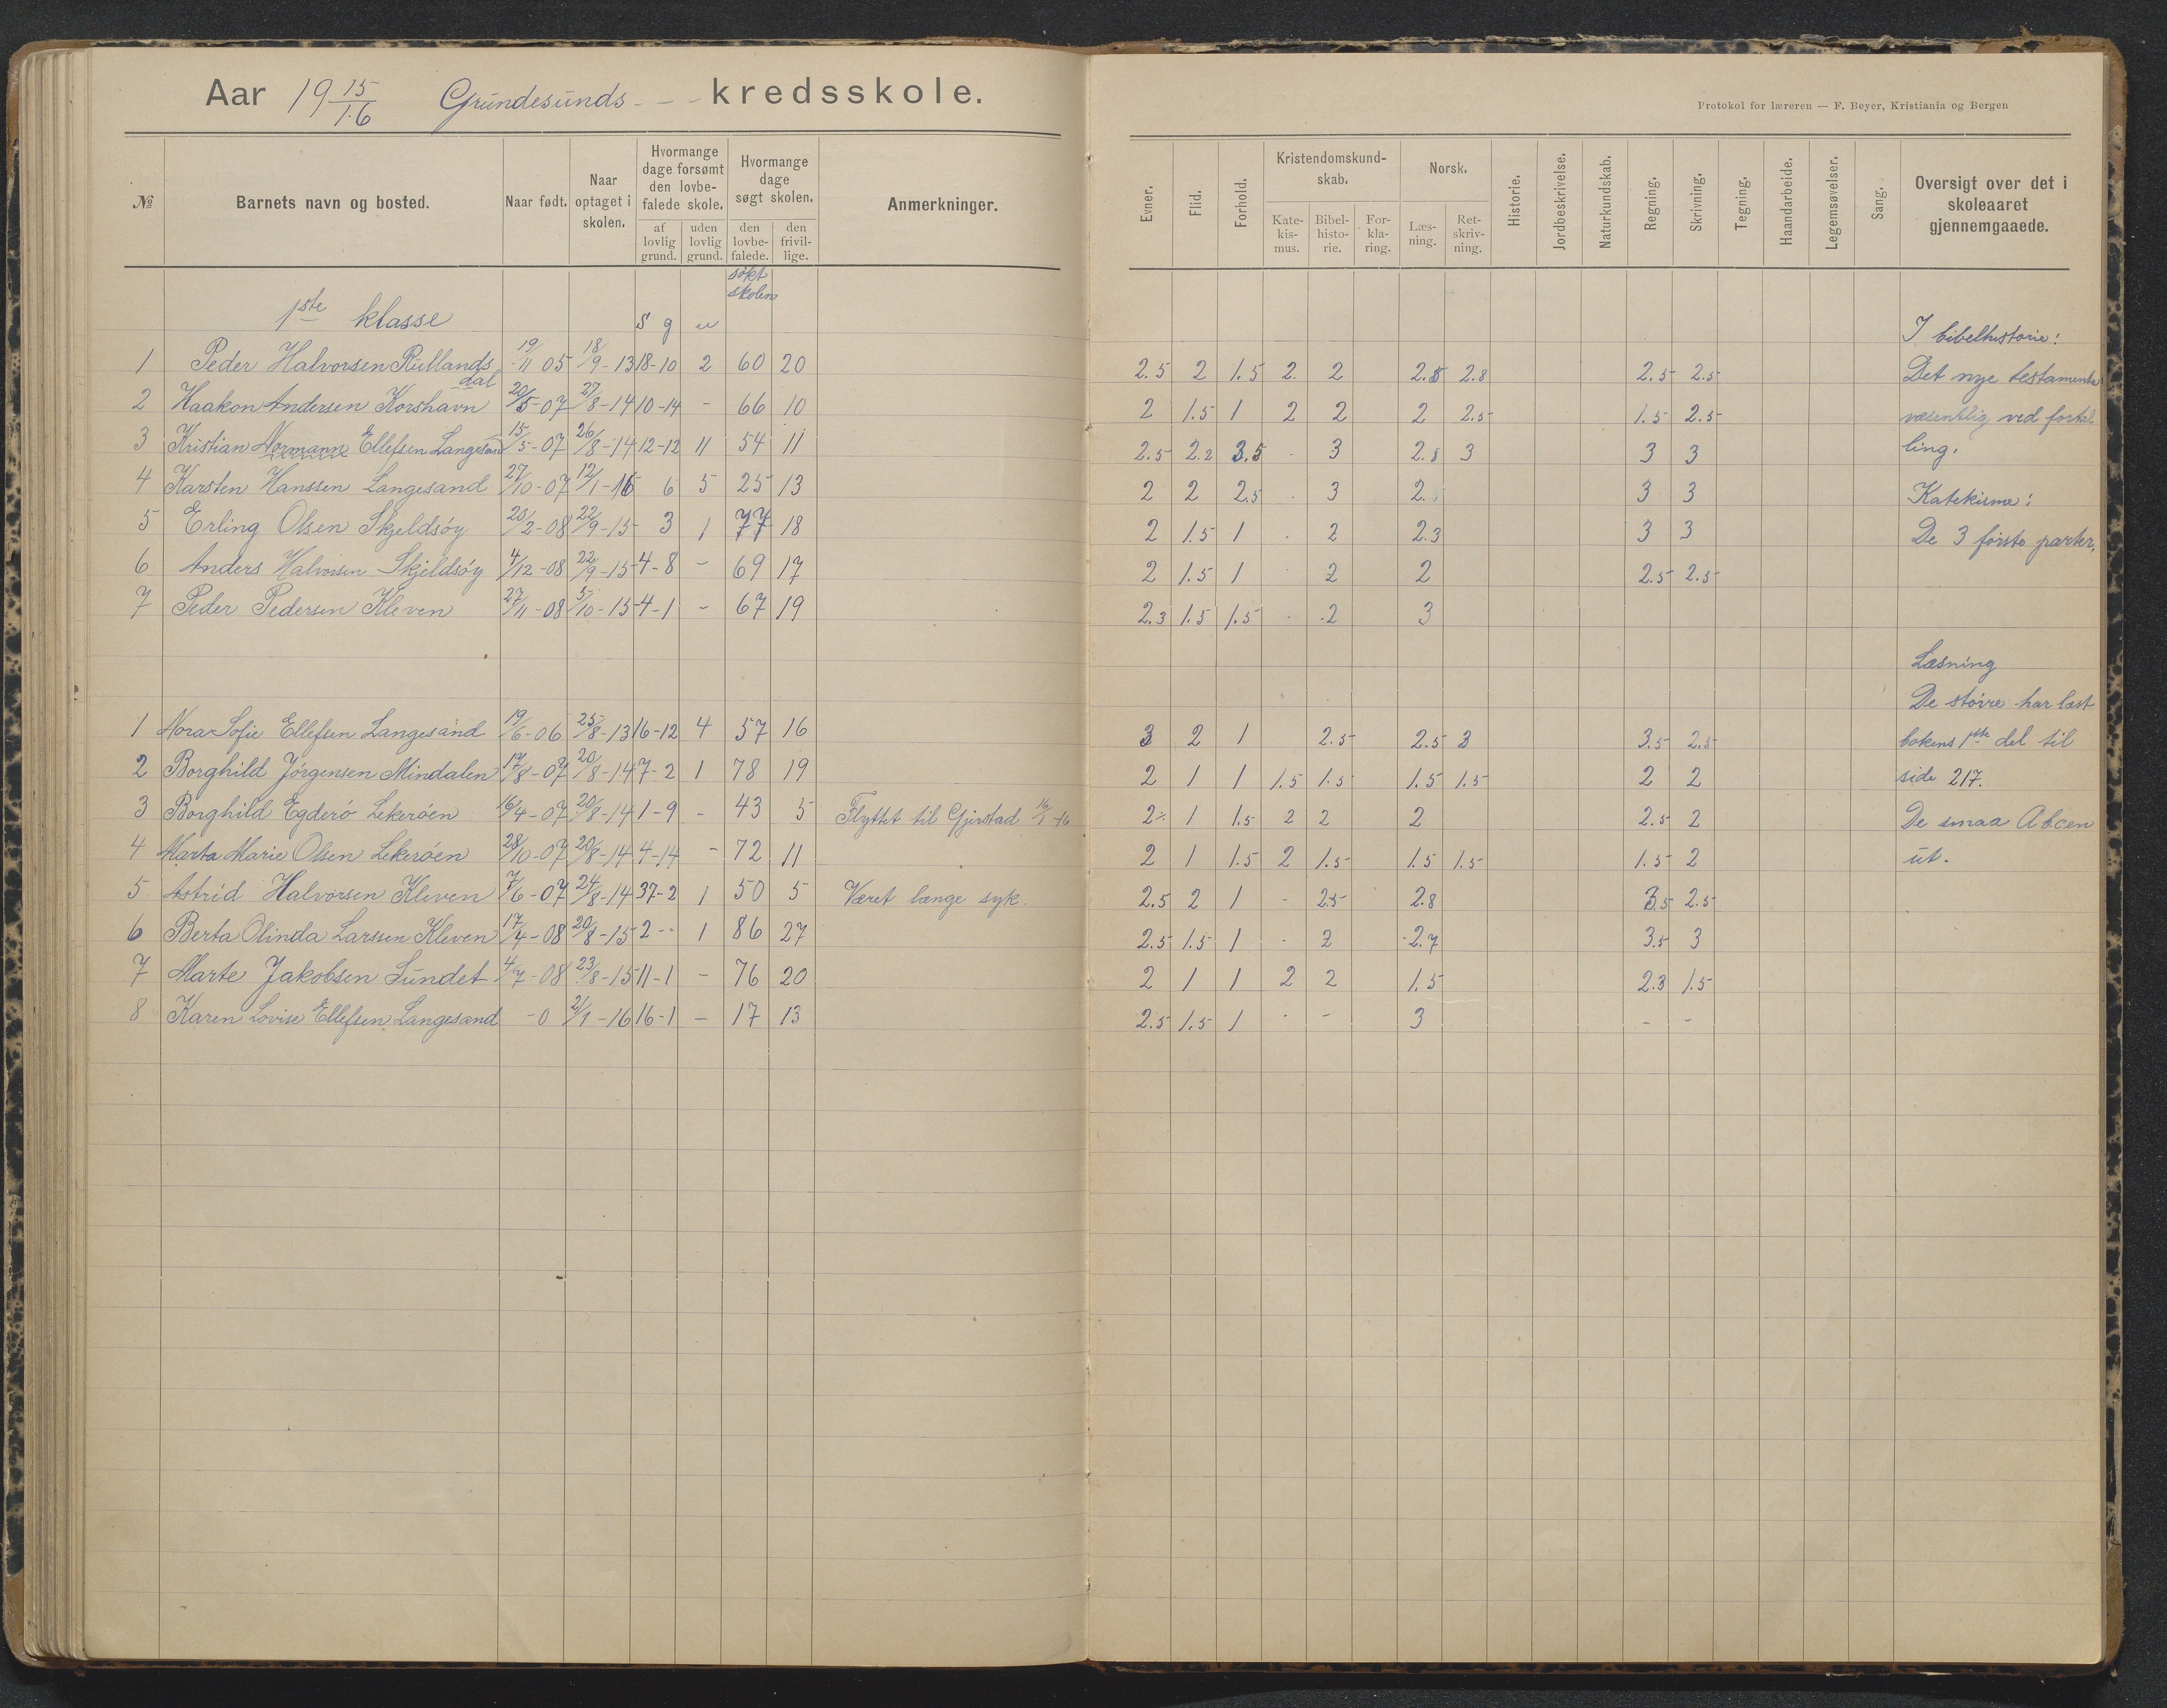 Aar 19 15/16 Grundesunds - - kredsskole.
№ Barnets navn og bosted. Naar født. Naar optaget i skolen. Hvormange dage forsømt den lovbefalede skole. af lovlig grund. uden lovlig grund. Hvormange dage søgt skolen. den lovbefalede. den frivillige. Anmerkninger.
søkt skolen
1ste klasse S g u
1 Peder Halvorsen Rullandsdal 19/11 05 18/9-13 18-10 2 60 20
2 Haakon Andersen Korshavn 20/5-07 27/8-14 10-14 - 66 10
3 Kristian Normann Ellefsen Langesand 15/5-07 26/8-14 12-12 11 54 11
4 Karsten Hanssen Langesand 27/10-07 12/1-16 6 5 25 13
5 Erling Olsen Skjeldsøy 20/2-08 22/9-15 3 1 77 18
6 Anders Halvorsen Skjeldsøy 4/12-08 22/9-15 4-8 - 69 17
7 Peder Pedersen Kleven 27/11-08 5/10-15 4-1 - 67 19
1 Nora Sofie Ellefsen Langesand 19/6-06 25/8-13 16-12 4 57 16
2 Borghild Jørgensen Mindalen 17/8-07 20/8-14 7-2 1 78 19
3 Borghild Egderö Lekeröen 16/4-07 20/8-14 1-9 - 43 5 Flyttet til Gjerstad 16/1-16
4 Marta Marie Olsen Lekeröen 28/10-07 20/8-14 4-14 - 72 11
5 Astrid Halvorsen Kleven 7/6-07 24/8-14 37-2 1 50 5 Været længe syk.
6 Berta Olinda Larssen Kleven 17/4-08 20/8-15 2-- 1 86 27
7 Marte Jakobsen Sundet 4/7-08 23/8-15 11-1 - 76 20
8 Karen Lovise Ellefsen Langesand -0 2/1-16 16-1 - 17 13
Protokol for læreren — F. Beyer, Kristiania og Bergen
Evner. Flid. Forhold. Kristendomskundskab. Katekismus. Bibelhistorie. Forklaring. Norsk. Læsning. Retskrivning. Historie. Jordbeskrivelse. Naturkundskab. Regning. Skrivning. Tegning. Haandarbeide. Legemsøvelser. Sang. Oversigt over det i skoleaaret gjennemgaaede.
I bibelhistorie:
2.5 2 1.5 2. 2 2.8 2.8 2.5 2.5 Det nye testamente
2 1.5 1 2 2 2 2.5 1.5 2.5 væsentlig ved fortel-
2.5 2.2 3.5 . 3 2.8 3 3 3 ling.
2 2 2.5 . 3 2. 3 3 Katekisme:
2 1.5 1 . 2 2.3 3 3 De 3 første parter.
2 1.5 1 2 2 2.5 2.5
2.3 1.5 1.5 - -2 3
Læsning
De større har læst
3 2 1 2.5 2.5 3 3.5 2.5 bokens 1ste del til
2 1 1 1.5 1.5 1.5 1.5 2 2 side 217.
2 1 1.5 2 2 2 2.5 2 De smaa Abcen
2 1 1.5 2 1.5 1.5 1.5 1.5 2 ut.
2.5 2 1 - 2.5 2.8 3.5 2.5
2.5 1.5 1 - 2 2.7 3.5 3
2 1 1 2 2 1.5 2.3 1.5
2.5 1.5 1 - - 3 - -